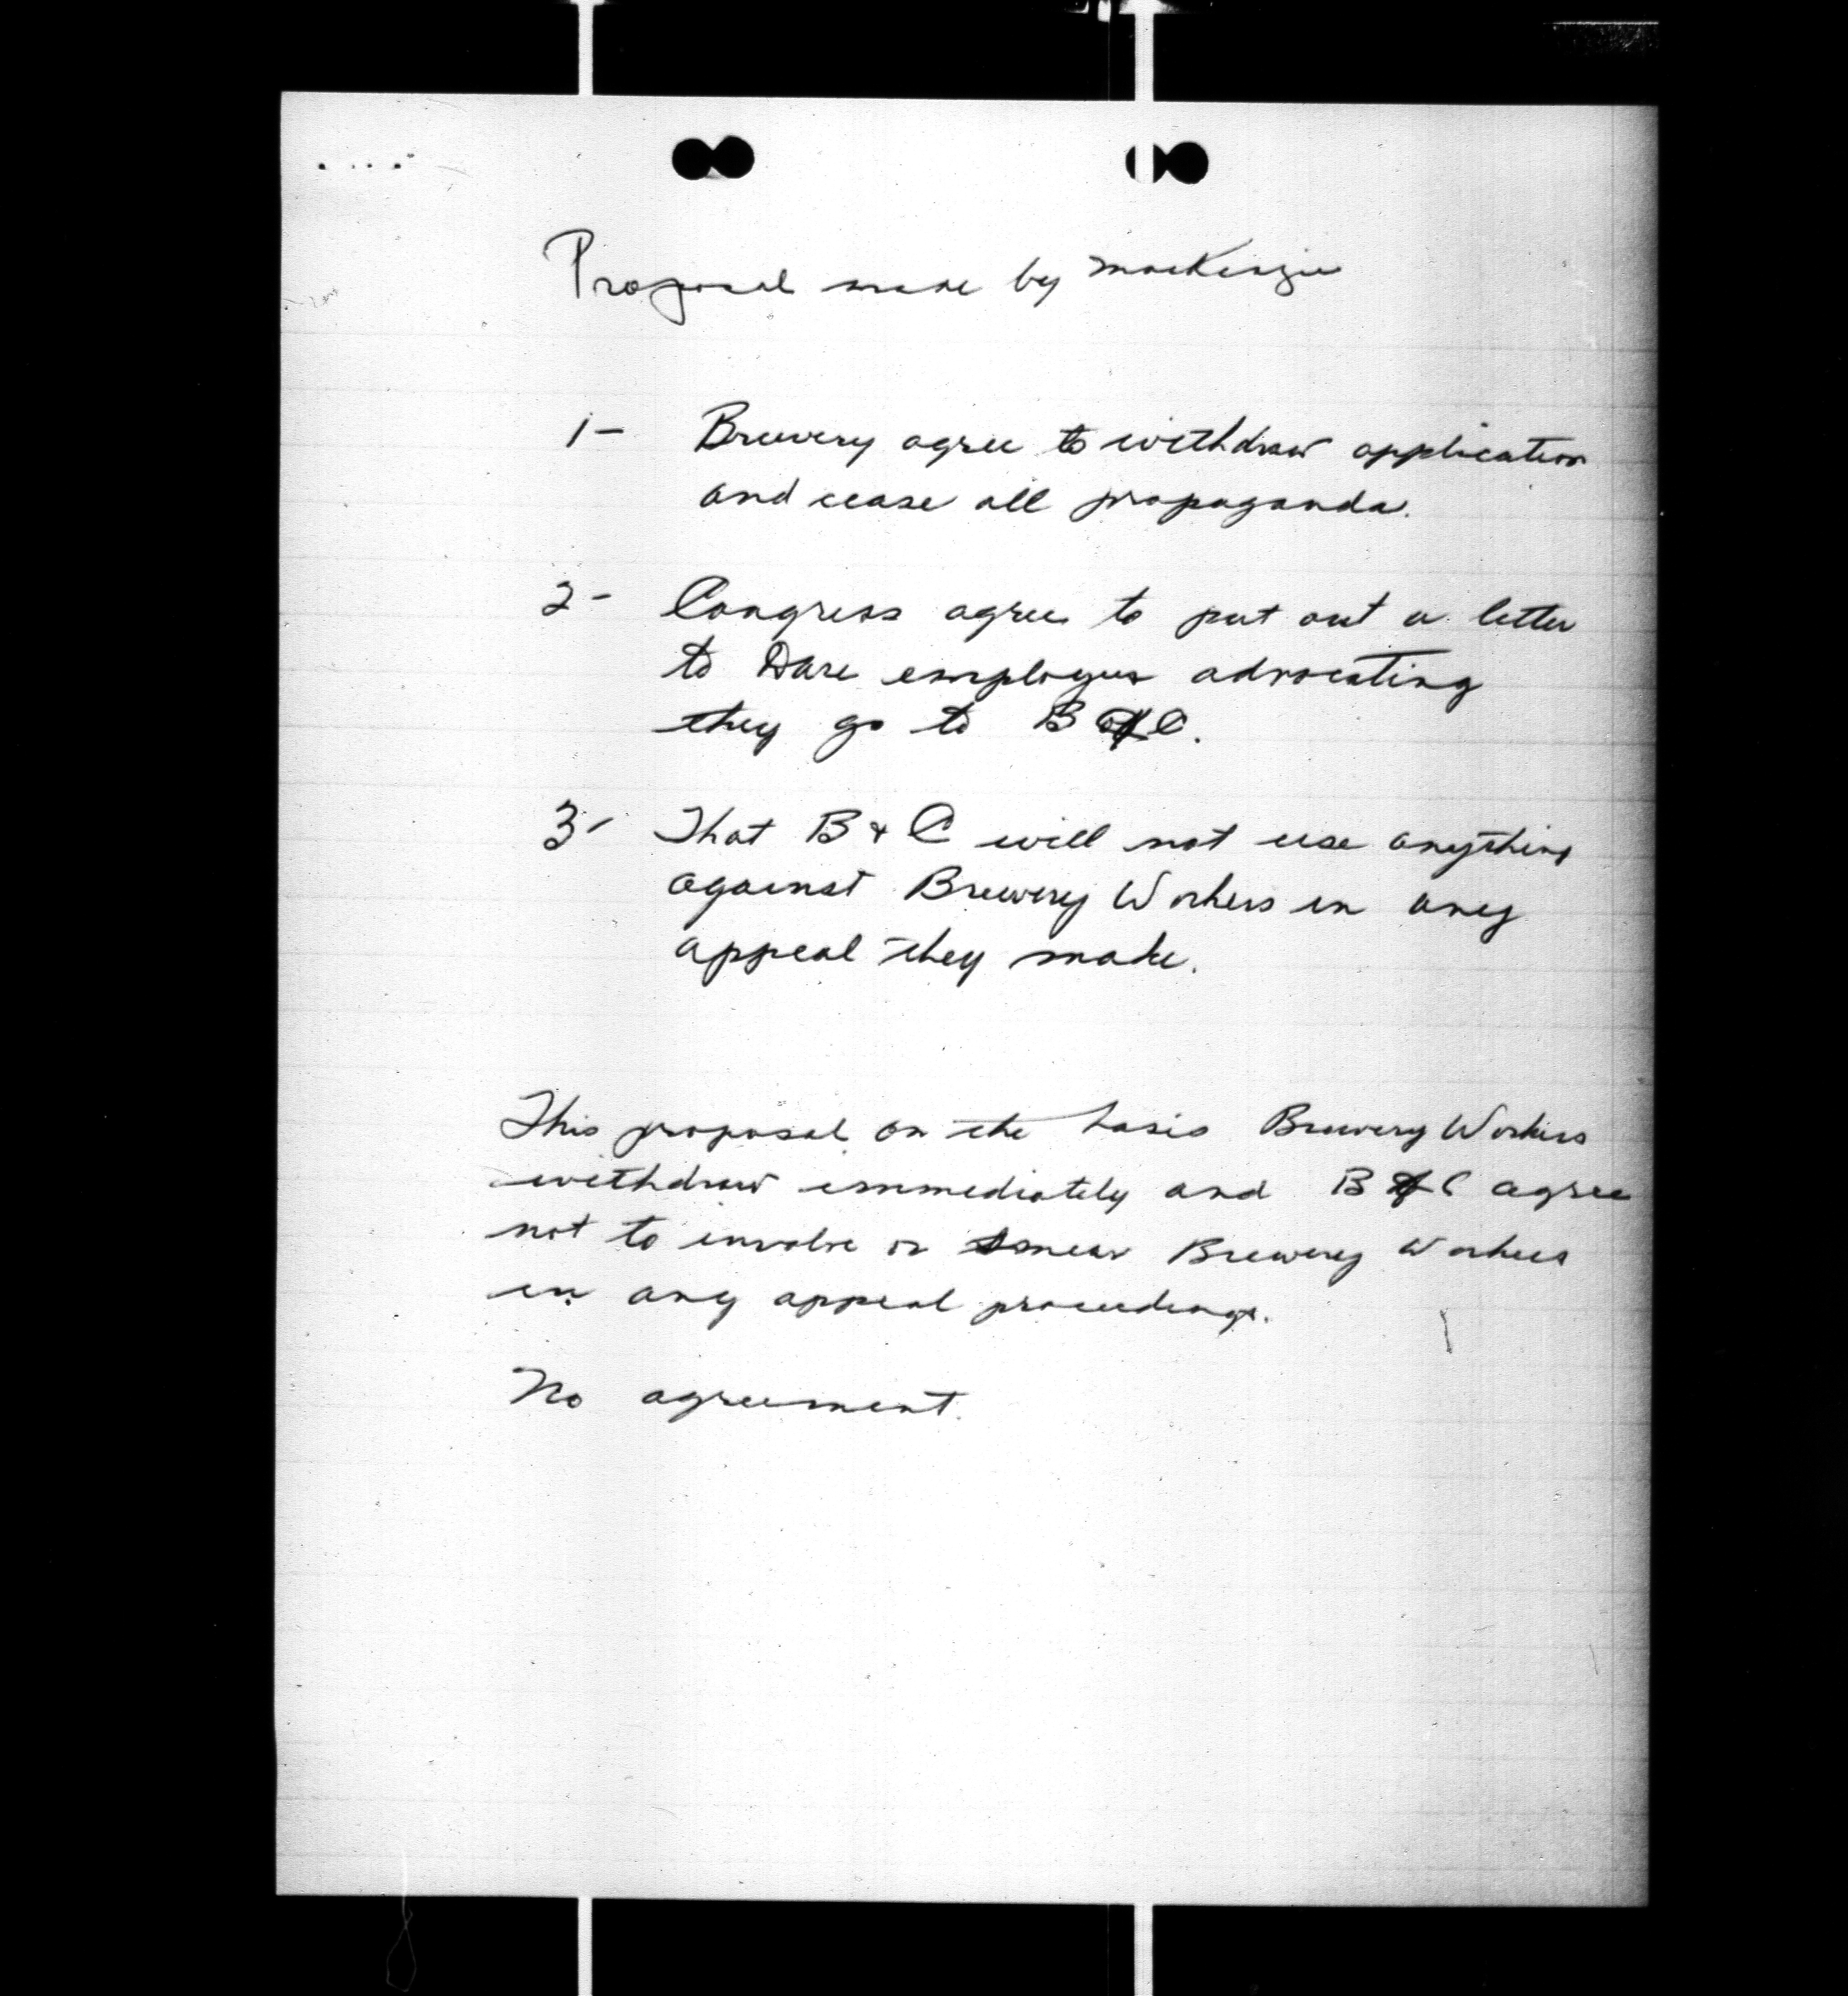 Proposal made by MacKenzie
1- Brewery agree to withdraw application
and cease all propaganda.
2- Congress agree to put out a letter
to Dare employees advocating
they go to B & C.
3- That B & C will not use anything
against Brewery Workers in any
appeal they make.
This proposal on the basis Brewery Workers
withdraw immediately and B & C agree
not to involve or smear Brewery Workers
in any appeal proceedings.
No agreement.